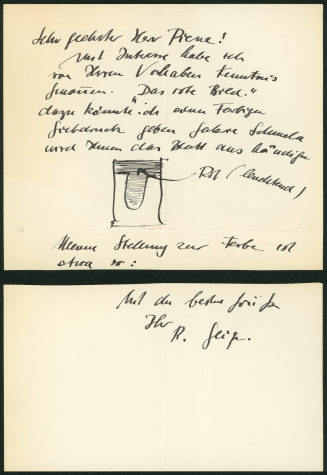 Sehr geehrter Herr Piene!
Mit Interesse habe ich
von Ihrem Vorhaben Kenntnis
genommen. "Das rote Bild."
dazu könnte ich einen fertigen
Siebdruck geben Galerie Schmela
wird Ihnen das Blatt aushändigen
Rot (leuchtend)
Meine Stellung zur Farbe ist
etwa so:
Mit den besten Grüßen
Ihr
R. Geiger.